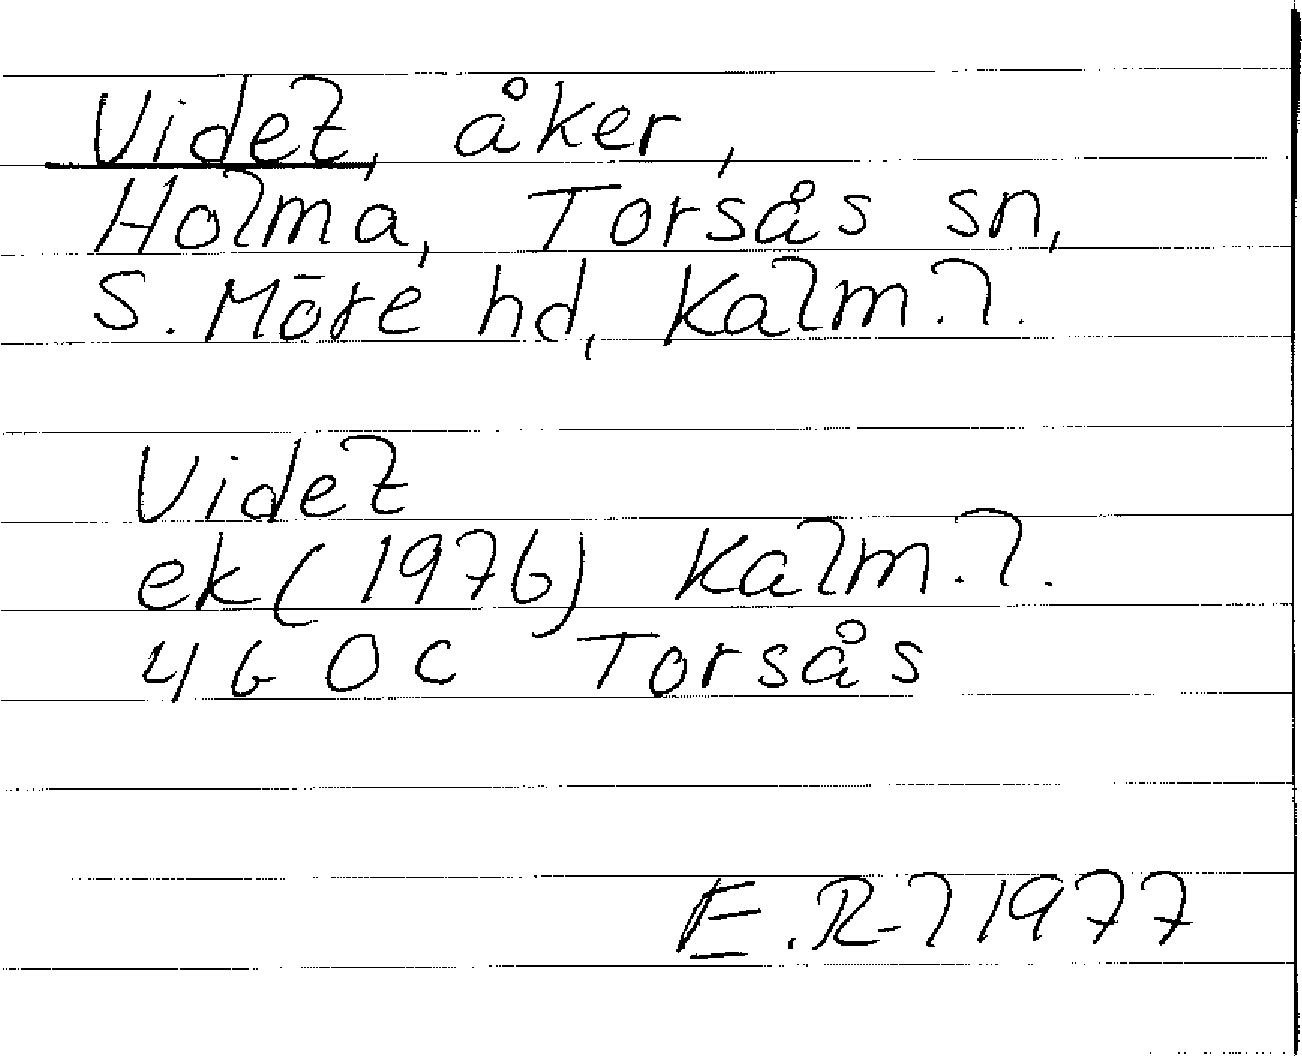 Videt, åker,
Holma, Torsås sn,
S. Möre hd, Kalm.l.
Videt
ek (1976) Kalm.l.
4 G 0 c Torsås
E.R-l 1977